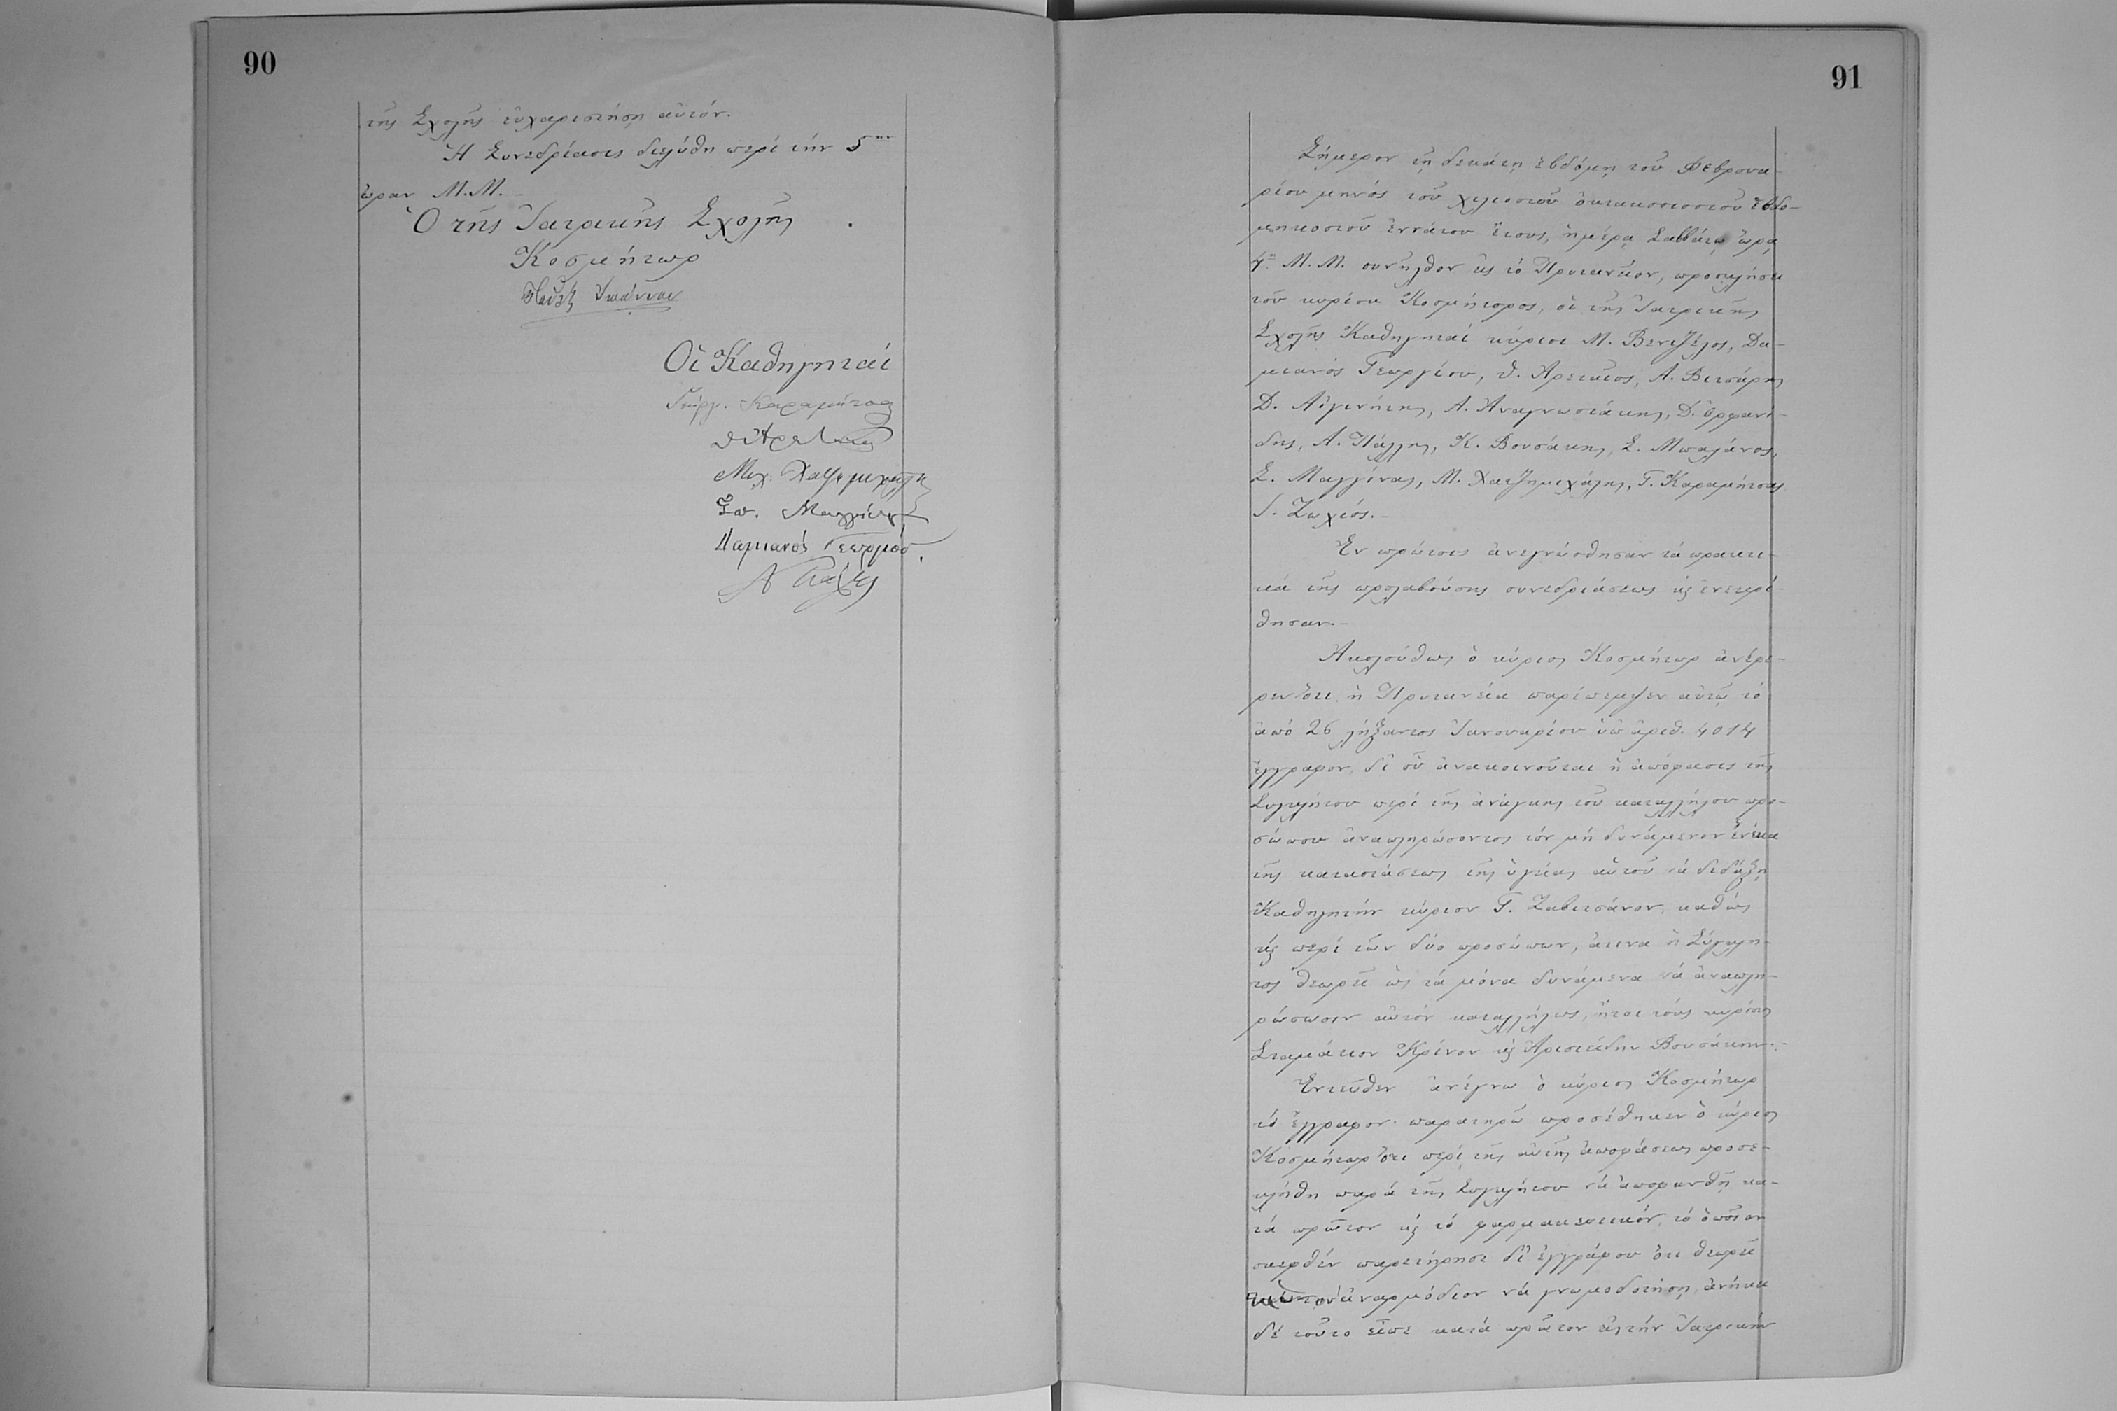 90
τῆς Σχολῆς εὐχαριστήσῃ αὐτόν.
Ἡ Συνεδρίασις διελύθη περί τήν 5ην
ὥραν Μ.Μ.
Ὁ τῆς Ἰατρικῆς Σχολῆς
Κοσμήτωρ
Παῦλος Ἰωάννου
Οἱ Καθηγηταί
Γεώργ. Καραμήτσας
Θ Ἀρεταῖος
Μιχ. Χατζημιχάλης
Σπ. Μαγγίνας
Δαμιανός Γεωργίου
Α Πάλλης
91
Σήμερον τῇ δεκάτῃ ἑβδόμῃ τοῦ Φεβρουα-
ρίου μηνός τοῦ χιλιοστοῦ ὀκτακοσιοστοῦ ἑβδο-
μηκοστοῦ ἐννάτου ἔτους, ἡμέρᾳ Σαββάτῳ ὥρᾳ
4ῃ Μ.Μ. συνῆλθον εἰς τό Πρυτανεῖον, προσκλήσει
τοῦ κυρίου Κοσμήτορος, οἱ τῆς Ἰατρικῆς
Σχολῆς Καθηγηταί κύριοι Μ. Βενιζέλος, Δα-
μιανός Γεωργίου, Θ. Ἀρεταῖος, Α. Βιτσάρης
Δ. Αἰγινήτης, Α. Ἀναγνωστάκης, Δ. Ὀρφανί-
δης, Α. Πάλλης, Κ. Βουσάκης, Σ. Μπαλάνος,
Σ. Μαγγίνας, Μ. Χατζημιχάλης, Γ. Καραμήτσας
Ι. Ζωχιός.-
Ἐν πρώτοις ἀνεγνώσθησαν τά πρακτι-
κά τῆς προλαβούσης συνεδριάσεως καί ἐνεκρί-
θησαν.-
Ἀκολούθως ὁ κύριος Κοσμήτωρ ἀνέφε-
ρεν ὅτι ἡ Πρυτανεία παρέπεμψεν αὐτῷ τό
ἀπό 26 λήξαντος Ἰανουαρίου ὑπ' ἀριθ. 4014
ἔγγραφον, δι' οὗ ἀνακοινοῦται ἡ ἀπόφασις τῆς
Συγκλήτου περί τῆς ἀνάγκης τοῦ καταλλήλου προ-
σώπου ἀναπληρώσοντος τόν μή δυνάμενον ἕνεκα
τῆς καταστάσεως τῆς ὑγείας αὐτοῦ νά διδάξῃ
Καθηγητήν κύριον Γ. Ζαβιτσάνον, καθώς
καί περί τῶν δύο προσώπων, ἅτινα ἡ Σύγκλη-
τος θεωρεῖ ὡς τά μόνα δυνάμενα νά ἀναπλη-
ρώσωσιν αὐτόν καταλλήλως, ἤτοι τούς κυρίους
Σταμάτιον Κρίνον καί Ἀριστείδην Βουσάκην.-
Ἐντεῦθεν ἀνέγνω ὁ κύριος Κοσμήτωρ
τό ἔγγραφον· παρατηρῶ προσέθηκεν ὁ κύριος
Κοσμήτωρ ὅτι περί τῆς αὐτῆς ἀποφάσεως προσε-
κλήθη παρά τῆς Συγκλήτου νά ἀποφανθῇ κα-
τά πρῶτον καί τό φαρμακευτικόν, τό ὁποῖον
σκεφθέν παρετήρησε δι' ἐγγράφου ὅτι θεωρεῖ
ἀναρμόδιον νά γνωμοδοτήσῃ, ἀνήκει
δέ τοῦτο εἶπε κατά πρῶτον εἰς τήν Ἰατρικήν